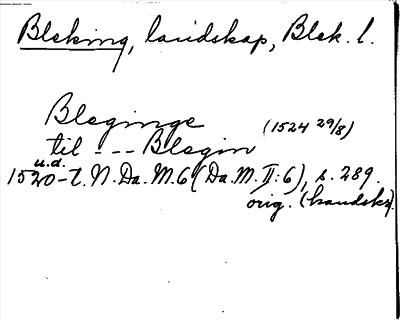 Bleking, landskap, Blek. l.
Bleginge (1524 29/8)
til - - - Blegin
u.d.
1520-t. N. Da. M. 6 (Da. M. II:6), s. 289.
orig. (handskr).